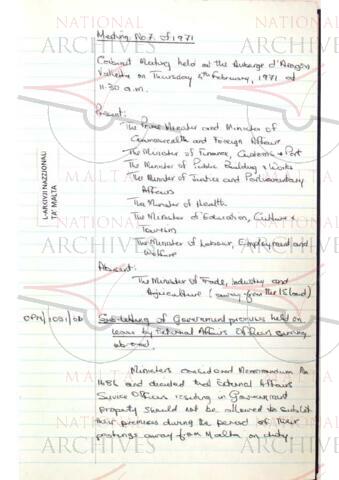 Meeting No 7 of 1971
Cabinet Meeting held at the Auberge d'Aragon
Valletta on Thursday 4th February, 1971 at
11.30 a.m.
Present:
The Prime Minister and Minister of
Commonwealth and Foreign Affairs
The Minister of Finance, Customs & Port
The Minister of Public Building & Works
The Minister of Justice and Parliamentary
Affairs
The Minister of Health
The Minister of Education, Culture &
Tourism
The Minister of Labour, Employment and
Welfare
Absent:
The Minister of Trade, Industry and
Agriculture (away from the Island)
Sub-letting of Government premises held on
lease by External Affairs Officers serving
Ministers considered Memorandum No
1486 and decided that External Affairs
Service Officers residing in Government
Property should not be allowed to sublet
their premises during the period of their
postings away from Malta on duty.
L-ARKIVJI NAZZJONALI
TA' MALTA
NATIONAL
ARCHIVES
MALTA